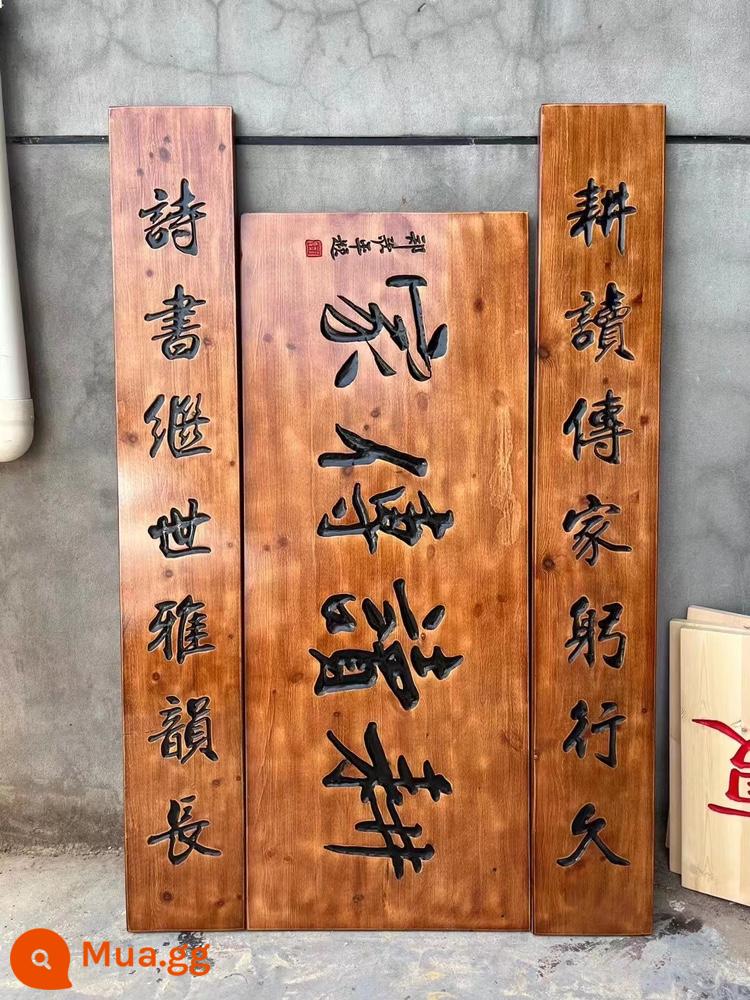 耕讀傳家躬行久
耕讀傳家
詩書繼世雅韻長
Mua.gg